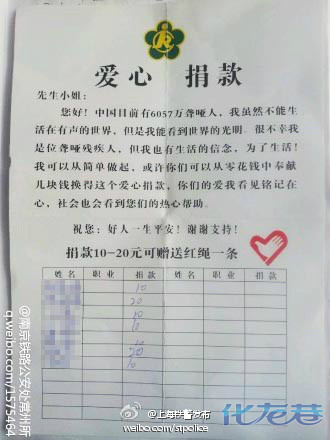 爱心 捐款
先生小姐：
您好！中国目前有6057万聋哑人，我虽然不能生
活在有声的世界，但是我能看到世界的光明。很不幸我
是位聋哑残疾人，但我也有生活的信念，为了生活！
我可以从简单做起，或许你们可以从零花钱中奉献
几块钱换得这个爱心捐款，你们的爱我看见铭记在
心，社会也会看到您们的热心帮助。
祝您：好人一生平安！谢谢支持！
捐款10-20元可赠送红绳一条
姓名 职业 捐款 姓名 职业 捐款
10
20
10
20
10
@南京铁路公安处常州所
q.weibo.com/1575464
@上海铁警发布
weibo.com/stpolice
化龙巷